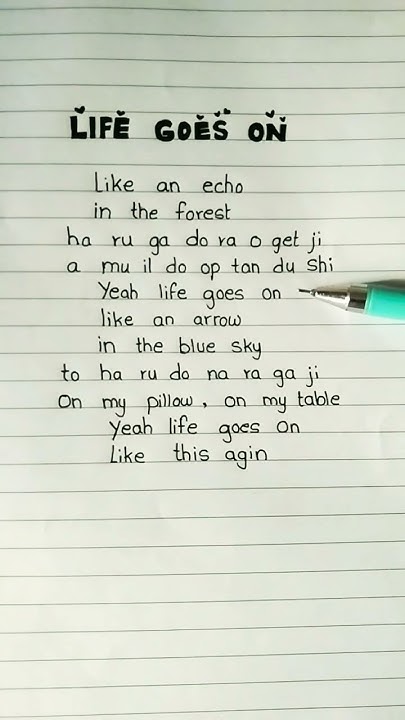 LIFE GOES ON
Like an echo
in the forest
ha ru ga do ra o get ji
a mu il do op tan du shi
Yeah life goes on
like an arrow
in the blue sky
to ha ru do na ra ga ji
On my pillow, on my table
Yeah life goes on
Like this agin